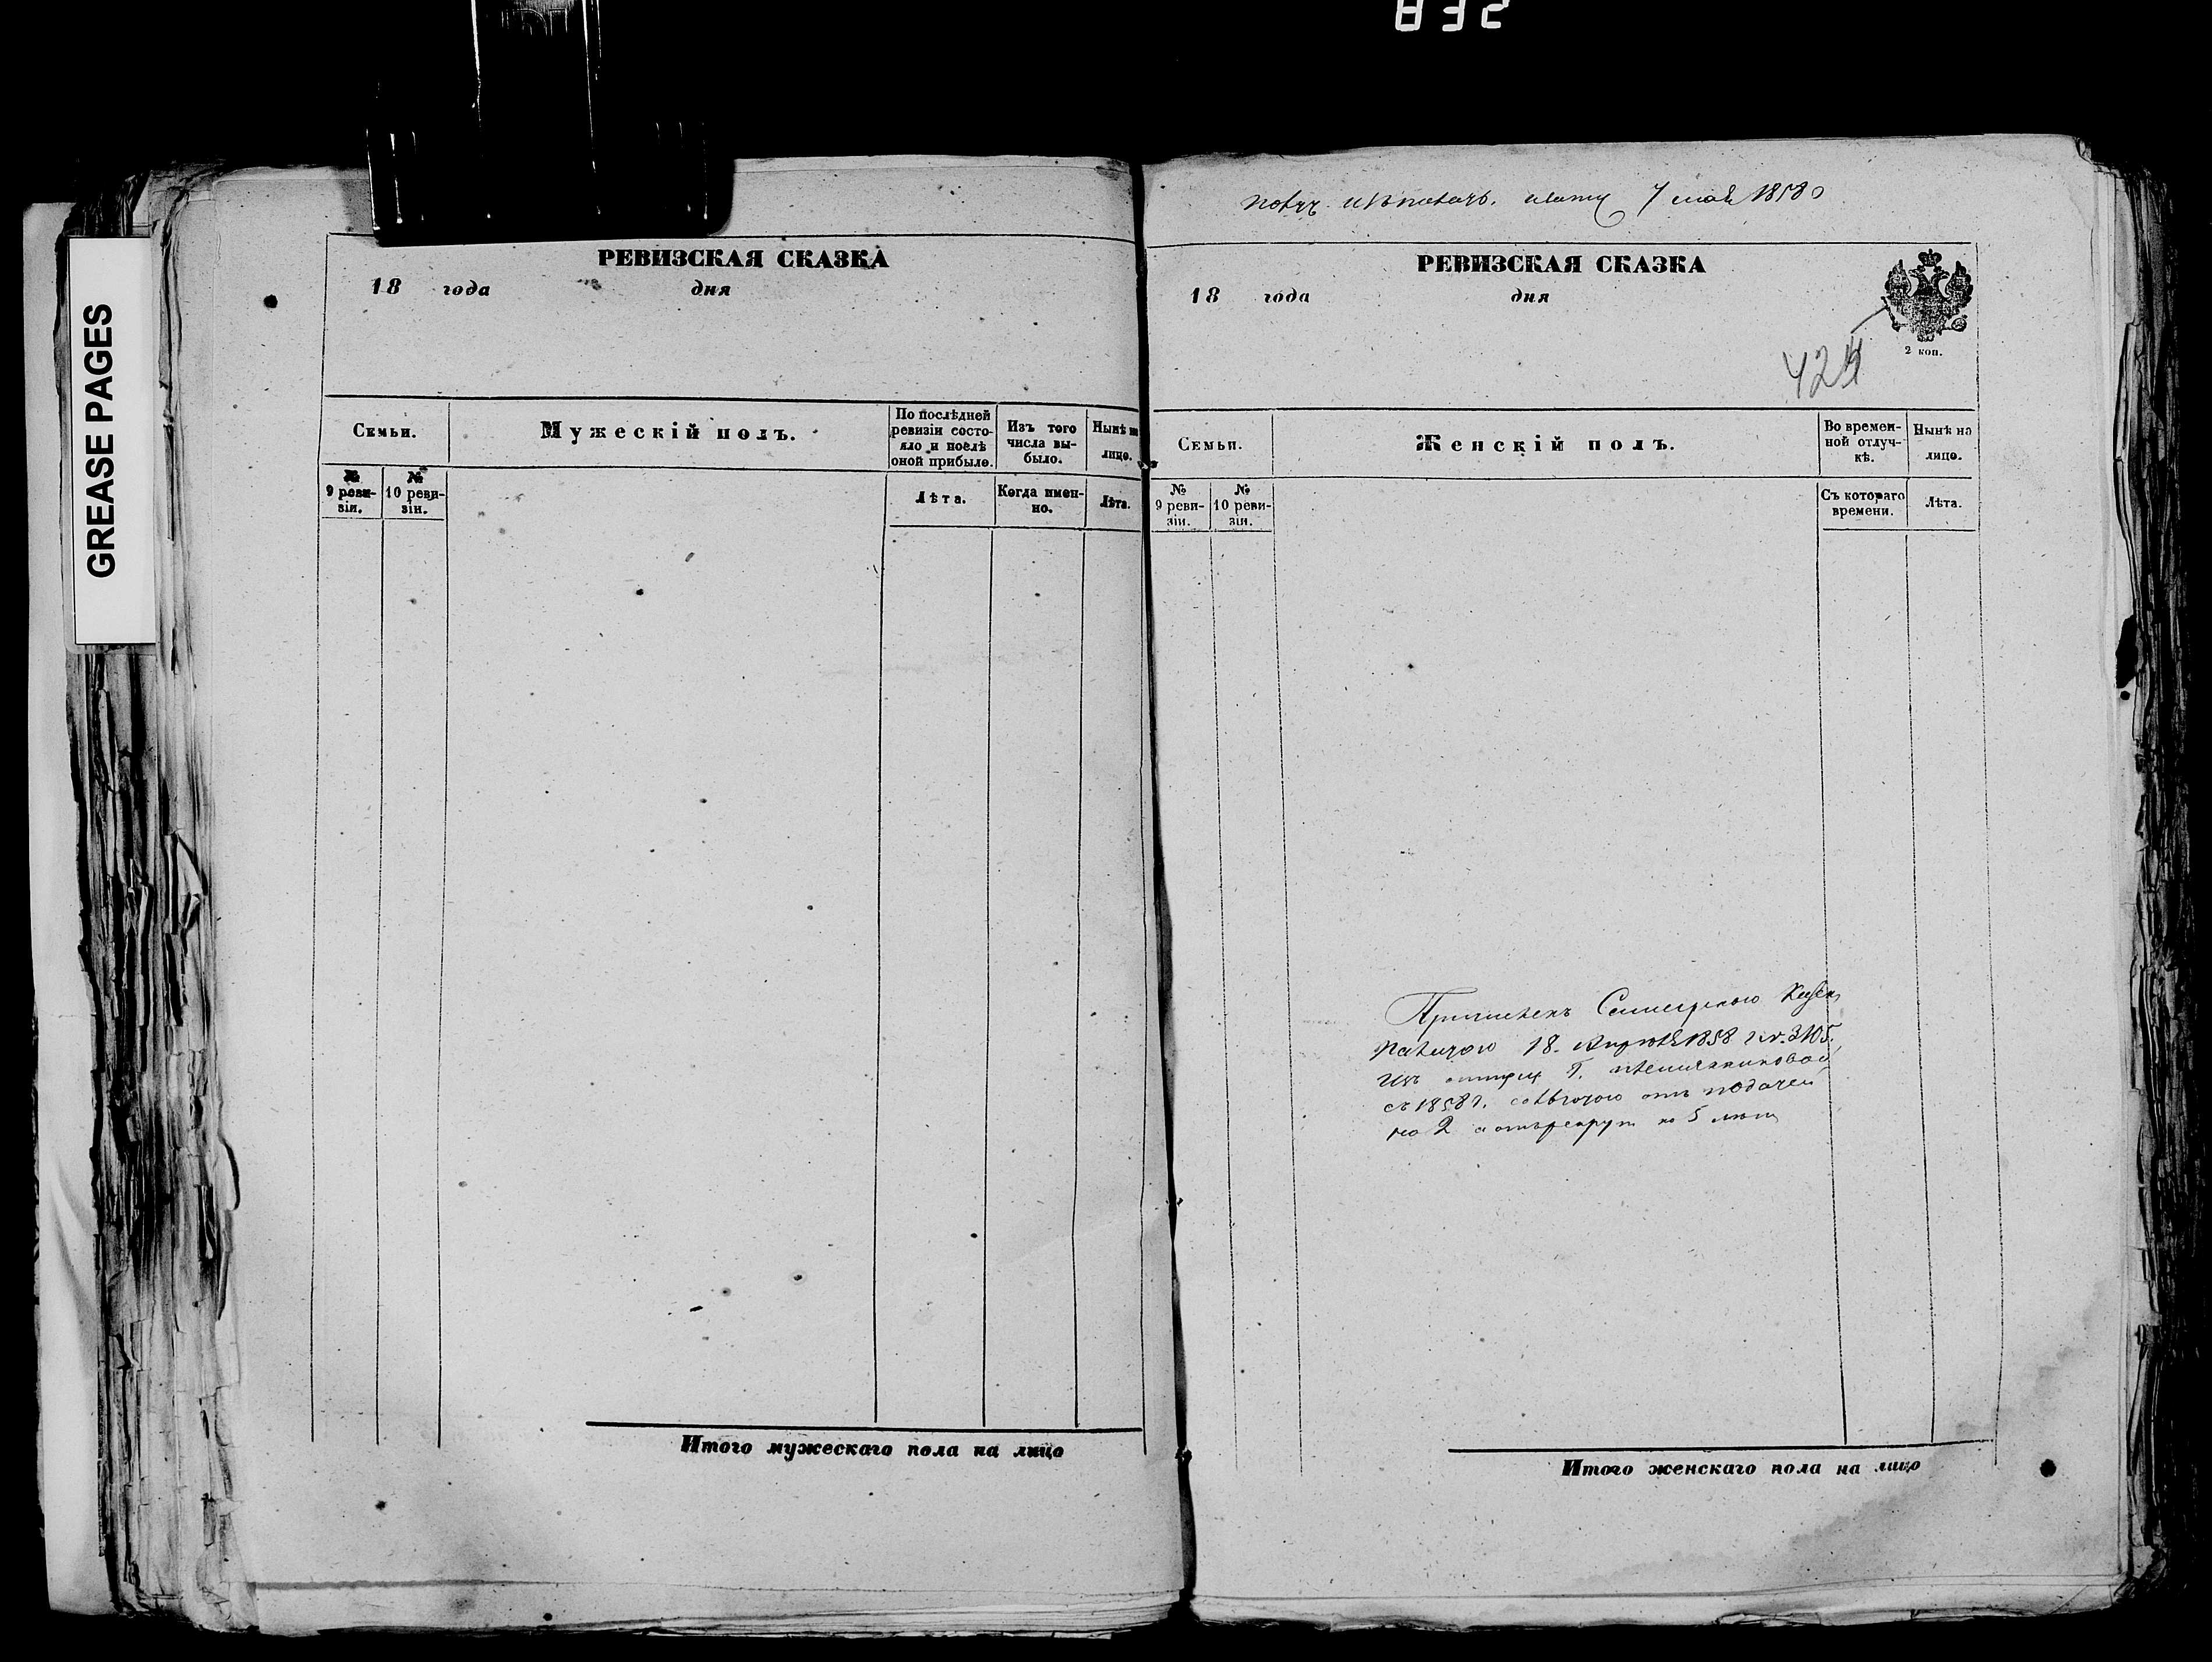 832
GREASE PAGES
РЕВИЗСКАЯ СКАЗКА
18 года дня
Семьи.
Мужескій полъ.
По послѣдней ревизіи состо-
яло и послѣ
оной прибыло.
Изъ того
числа вы-
было.
Нынѣ на
лицо.
№
9 реви-
зіи.
№
10 реви-
зіи.
Лѣта.
Когда имен-
но.
Лѣта.
Итого мужескаго пола на лицо
7 мая 1858
РЕВИЗСКАЯ СКАЗКА
18 года дня
2 коп.
424
Семьи.
Женскій полъ.
Во времен-
ной отлуч-
кѣ.
Нынѣ на
лицо.
№
9 реви-
зіи.
№
10 реви-
зіи.
Съ котораго
времени.
Лѣта.
Казен
Палатою 18. Апрѣля 1858 3105.
съ 1858 г. отъ податей
на 2 а отъ рекрут на 5 лѣтъ
Итого женскаго пола на лицо